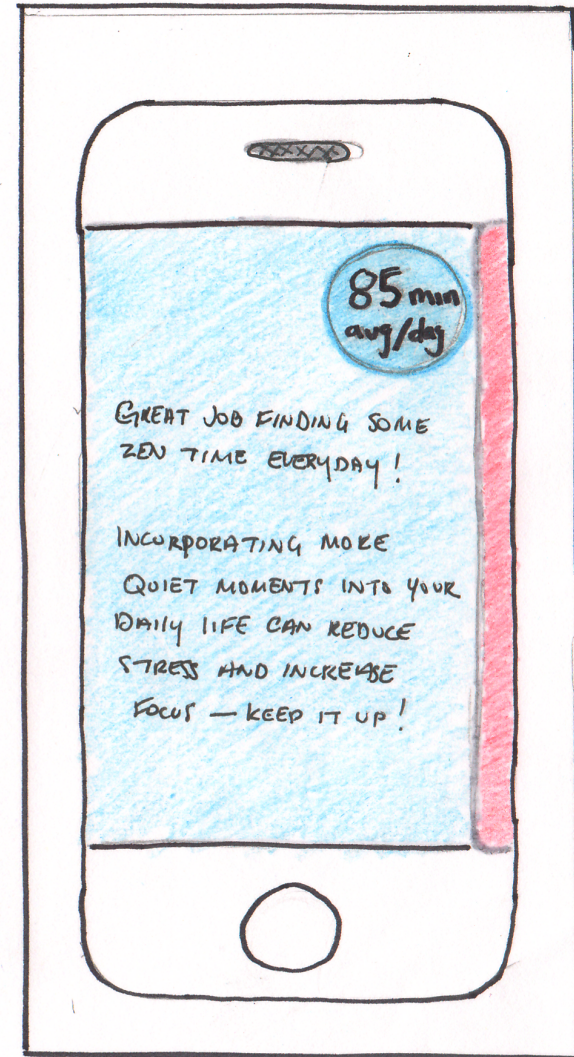 85 min
avg/day
GREAT JOB FINDING SOME
ZEN TIME EVERYDAY!
INCORPORATING MORE
QUIET MOMENTS INTO YOUR
DAILY LIFE CAN REDUCE
STRESS AND INCREASE
FOCUS — KEEP IT UP!